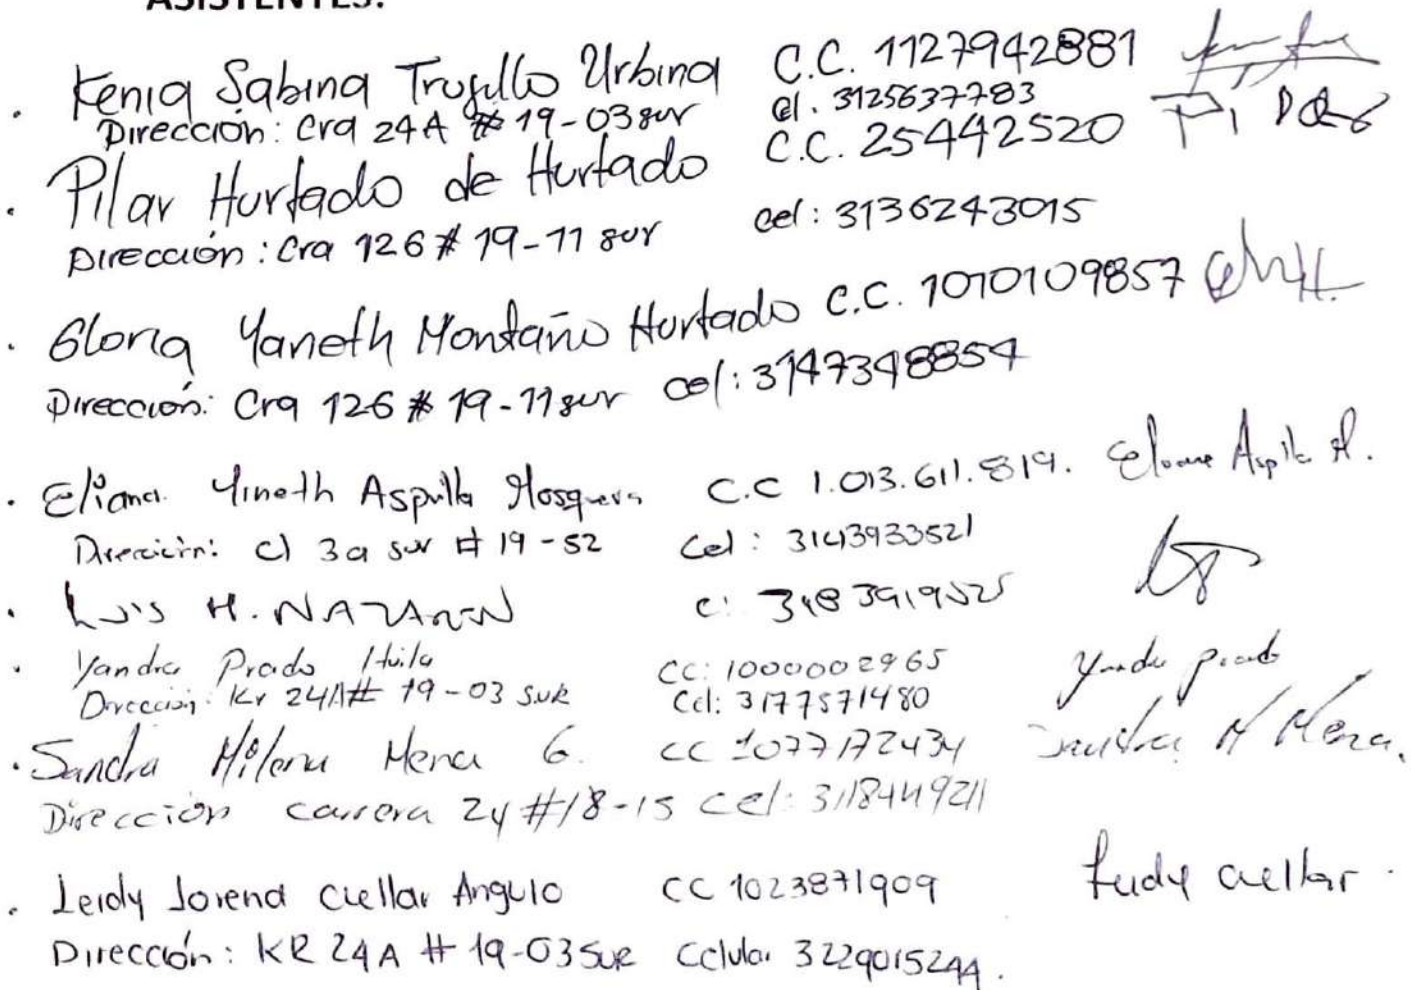 ASISTENTES:
. Kenia Sabina Trujillo Urbina C.C. 1127942881
Dirección: Cra 24A # 19-03 sur cel. 3125637783
. Pilar Hurtado de Hurtado C.C. 25442520
Dirección: Cra 126 # 19-11 sur cel: 3136243015
. Gloria Yaneth Montaño Hurtado C.C. 1010109857
Dirección: Cra 126 # 19-11 sur cel: 3147348854
. Eliana Yineth Asprilla Mosquera C.C 1.013.611.819.
Dirección: cl 3a sur # 19-52 Cel: 3143933521
. Luis H. NAZAREN C:
. Yandra Prado Huila CC: 1000002965 Yandra Prado
Dirección: Kr 24A# 19-03 SUR Cel: 3177571480
. Sandra Milena Mena G. CC 1077172434 Sandra M Mena.
Dirección carrera 24 #18-15 Cel: 3118449211
. Leidy Lorena Cuellar Angulo CC 1023871909 Leidy Cuellar.
Dirección: KR 24A # 19-03 SUR Celular 3229015244.